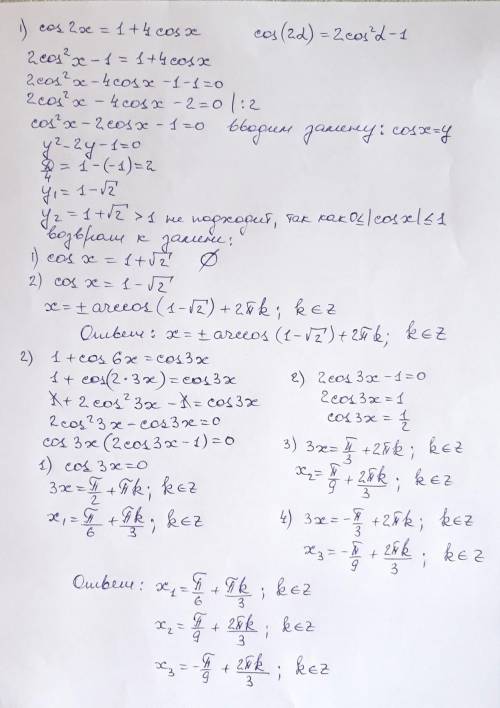 1) cos2x = 1+4cosx cos(2α)=2cos²α-1
2cos²x-1=1+4cosx
2cos²x-4cosx-1-1=0
2cos²x-4cosx-2=0 |:2
cos²x-2cosx-1=0 вводим замену: cosx=y
y²-2y-1=0
D/4 = 1-(-1)=2
y₁=1-√2
y₂=1+√2 >1 не подходит, так как 0≤|cosx|≤1
возврат к замене:
1) cos x = 1+√2 ∅
2) cos x = 1-√2
x=±arccos(1-√2)+2πk; k∈Z
Ответ: x=±arccos(1-√2)+2πk; k∈Z
2) 1+cos6x=cos3x
1+cos(2·3x)=cos3x
1+2cos²3x-1=cos3x
2cos²3x-cos3x=0
cos3x(2cos3x-1)=0
1) cos3x=0
3x=π/2+πk; k∈Z
x₁=π/6+πk/3; k∈Z
2) 2cos3x-1=0
2cos3x=1
cos3x=1/2
3) 3x=π/3+2πk; k∈Z
x₂=π/9+2πk/3; k∈Z
4) 3x=-π/3+2πk; k∈Z
x₃=-π/9+2πk/3; k∈Z
Ответ: x₁=π/6+πk/3; k∈Z
x₂=π/9+2πk/3; k∈Z
x₃=-π/9+2πk/3; k∈Z